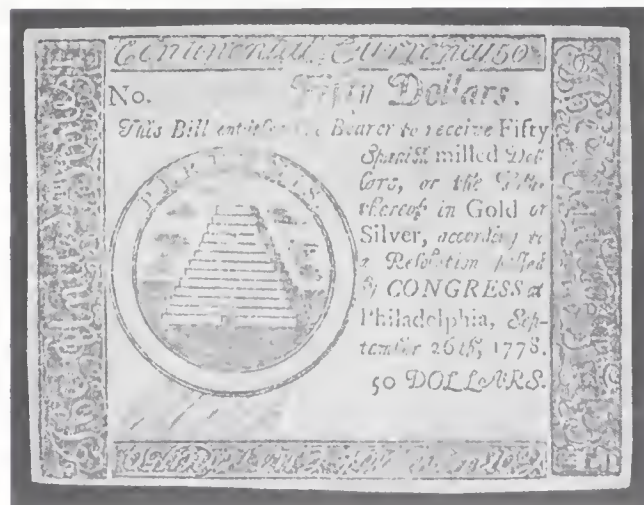 Continental Currency 50
No. Fifty Dollars.
This Bill entitles the Bearer to receive Fifty
Spanish milled Dol-
lars, or the Value
thereof in Gold or
Silver, according to
a Resolution passed
by CONGRESS at
Philadelphia, Sep-
tember 26th, 1778.
50 DOLLARS.
PERENNIS